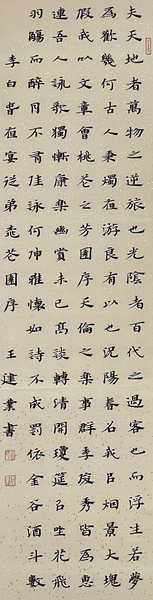 夫天地者萬物之逆旅也光陰者百代之過客也而浮生若夢
為歡幾何古人秉燭夜遊良有以也況陽春召我以烟景大塊
假我以文章會桃花之芳園序天倫之樂事群季俊秀皆為惠
連吾人詠歌獨慚康樂幽賞未已高談轉清開瓊筵以坐花飛
羽觴而醉月不有佳作何伸雅懷如詩不成罰依金谷酒斗數
李白春夜宴從弟桃花園序 王建業書